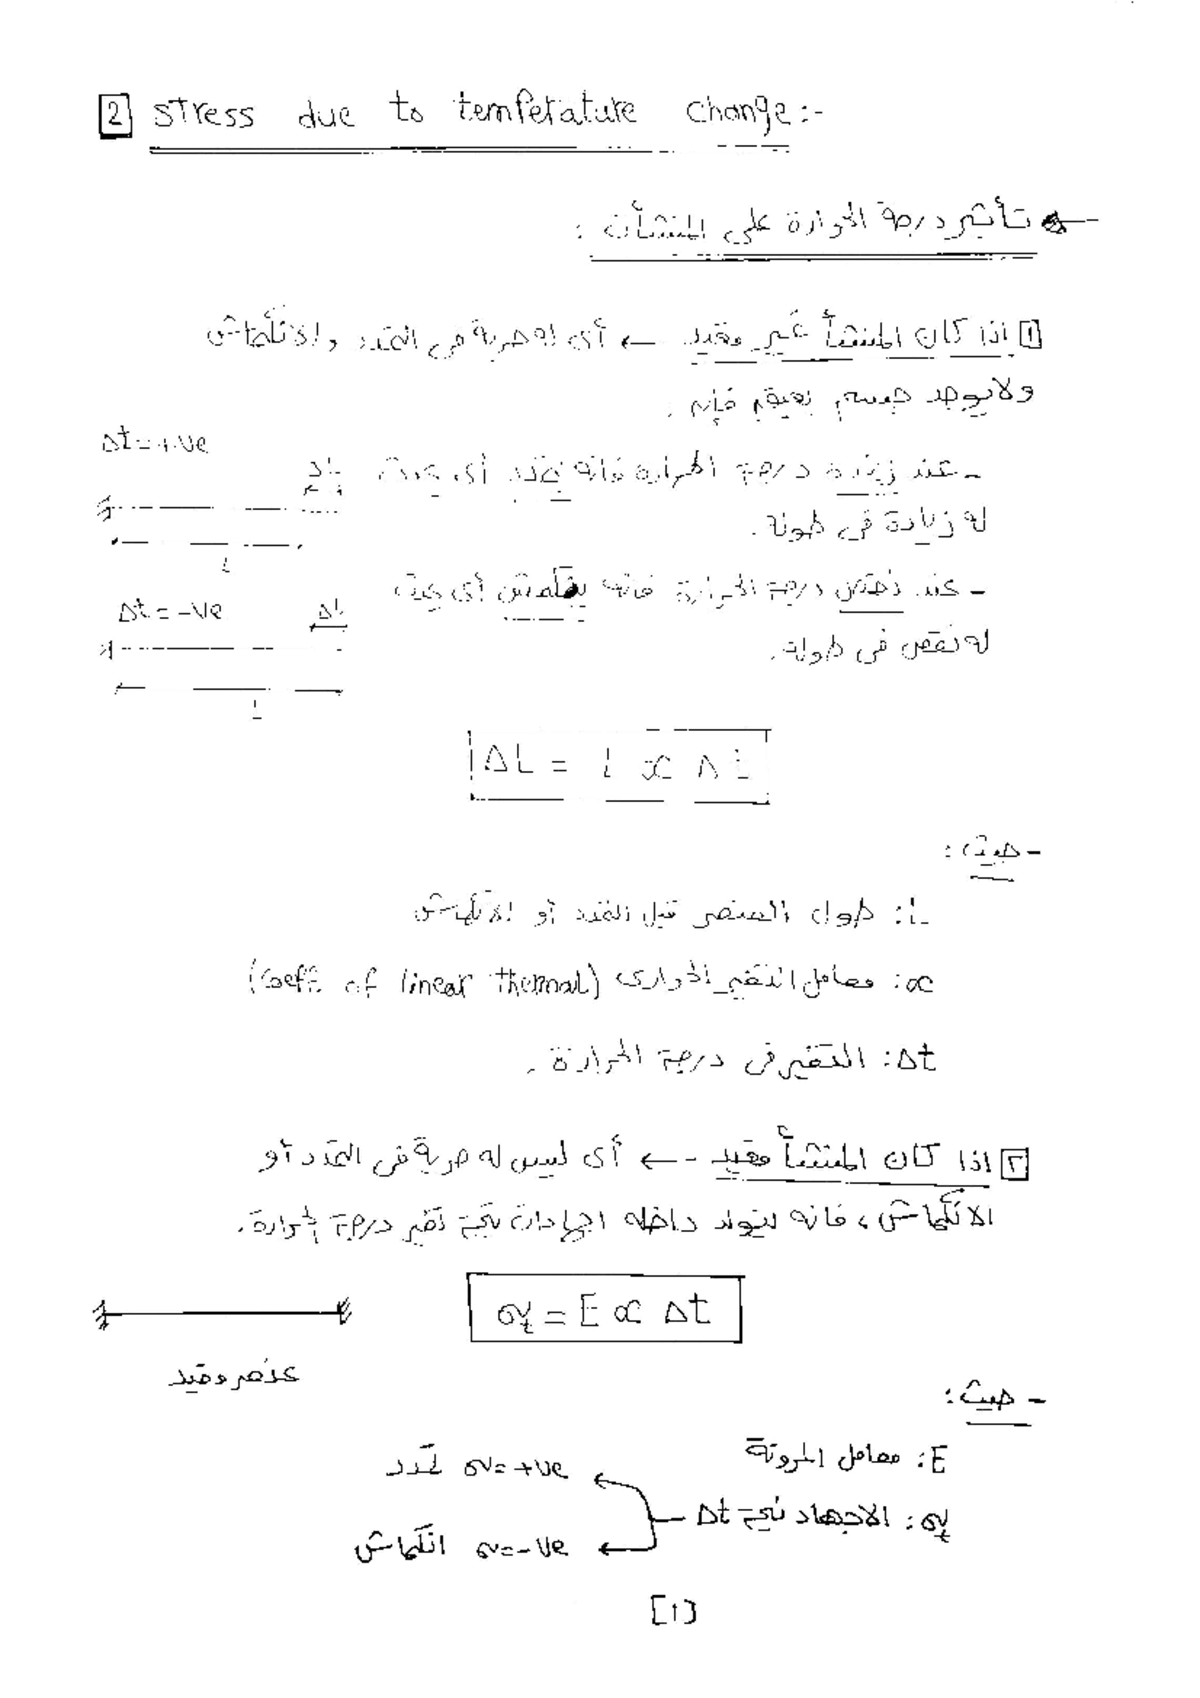 2 stress due to temperature change:-
← تأثير درجة الحرارة على المنشأت :
1 اذا كان المنشأ غير مقيد ← أى له حرية فى التمدد والانكماش
ولايوجد جسم يعيقه فإنه .
Δt = +ve
- عند زيادة درجة الحرارة فانه يتمدد أى يحدث
ΔL
له زيادة فى طوله .
L
- عند نقص درجة الحرارة فانه ينكمش أى يحدث
Δt = -ve ΔL
له نقص فى طوله .
L
ΔL = L α Δt
- حيث :
L : طول العنصر قبل التمدد أو الانكماش
α : معامل التغير الحرارى (Coeff. of linear thermal)
Δt : التغير فى درجة الحرارة .
٢ اذا كان المنشأ مقيد ← أى ليس له حرية فى التمدد أو
الانكماش ، فانه يتولد داخله اجهادات نتيجة تغير درجة الحرارة .
σt = E α Δt
عنصر مقيد
- حيث :
E : معامل المرونة
σt : الاجهاد نتيجة Δt
σ = +ve تمدد
σ = -ve انكماش
[1]